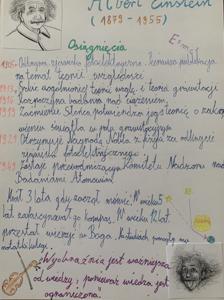 Albert Einstein
(1879 - 1955)
Osiągnięcia
E=m
1905 zjawisko fotoelektryczne, pierwsza publikacja
na temat teorii względności
1913 Szkic uogólnionej teorii względ. i teorii grawitacji
1916 Rozpoczyna badania nad
1919 Zaćmienie Słońca potwierdza jego teorię o zakrzy-
wieniu światła w polu grawitacyjnym
1921 Otrzymuje Nagrodę Nobla z fizyki za odkrycie
zjawiska fotoelektrycznego
1946 Zostaje przewodniczącym Komitetu Nadzoru nad
Badaniami Atomowymi
Miał 3 lata gdy zaczął mówić. W wieku 5
lat zafascynował go kompas. W wieku 12 lat
przestał wierzyć w Boga.
Wyobraźnia jest ważniejsza
od wiedzy, ponieważ wiedza jest
ograniczona.